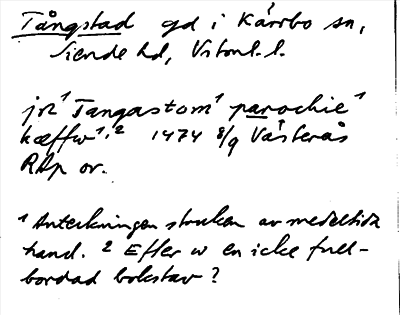 Tångstad gd i Kärrbo sn,
Siende hd, Vstml. l.
jn¹ Tangastom¹ parochie¹
kæffw¹,² 1474 8/9 Västerås
RAp or.
¹ Anteckningen struken av medeltida
hand. ² Efter w en icke full-
bordad bokstav?